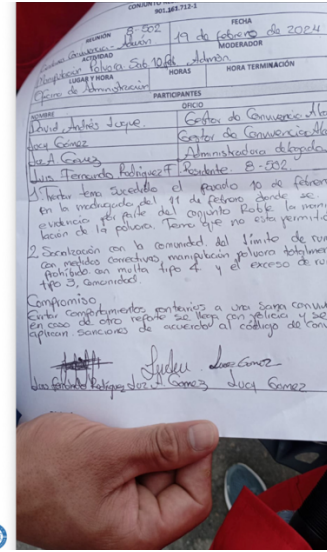 CONJUNTO
901.161.712-1
REUNIÓN 8-502
FECHA
19 de febrero de 2024
Comite Convivencia - Admón
ACTIVIDAD
MODERADOR
Manipulacion Pólvora Sab 10 feb Admón.
LUGAR Y HORA
HORAS
HORA TERMINACIÓN
Oficina de Administración
PARTICIPANTES
NOMBRE
OFICIO
David Andrés Luque.
Gestor de Convivencia
Lucy Gómez
Gestor de Convivencia
Luz A. Gómez
Administradora delegada
Luis Fernando Rodriguez F
Residente. 8-502.
1. tema sucedido el pasado 10 de febrero
en la madrugada del 11 de febrero donde se
evidencio por parte del conjunto Roble la
lación de la pólvora. Tema que no esta permiti
2. Socialización con la comunidad, del limite de
con medidas correctivas, manipulación polvora totalmen
prohibido con multa tipo 4 y el exceso de ru
tipo 3, comunidad.
Compromiso:
Evitar comportamientos contrarios a una sana conviv
en caso de otro reporte se llega con policia y se
aplican sanciones de acuerdo al código de Conv
Luz Gómez
Luis Fernando Rodríguez Luz A Gomez Lucy Gomez